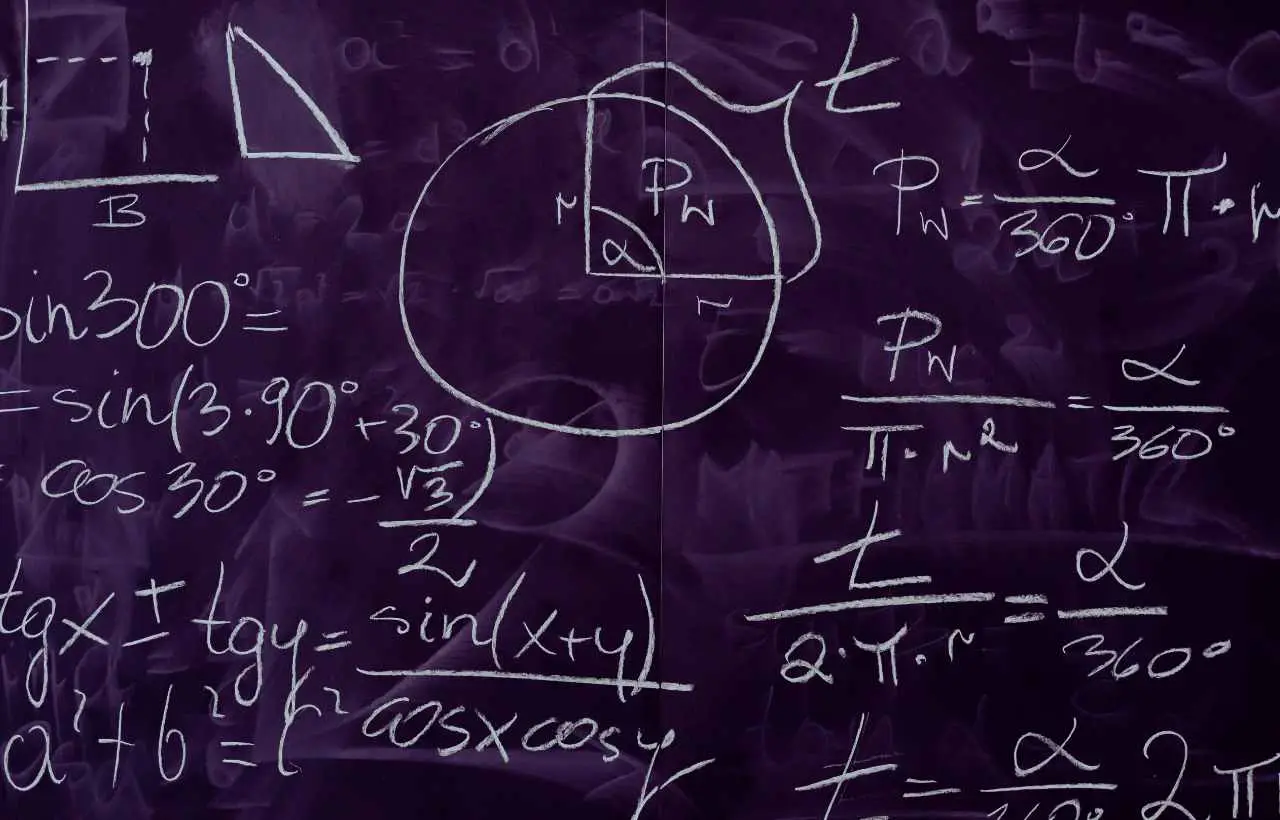 B
t
r
P_W
α
r
sin300°=
=sin(3·90°+30°)
= cos 30° = -√3/2
tgx ± tgy = sin(x+y)/cosxcosy
a²+b²=c²
P_W = α/360° π·r
P_W/π·r² = α/360°
t/2·π·r = α/360°
t = α/360° 2π